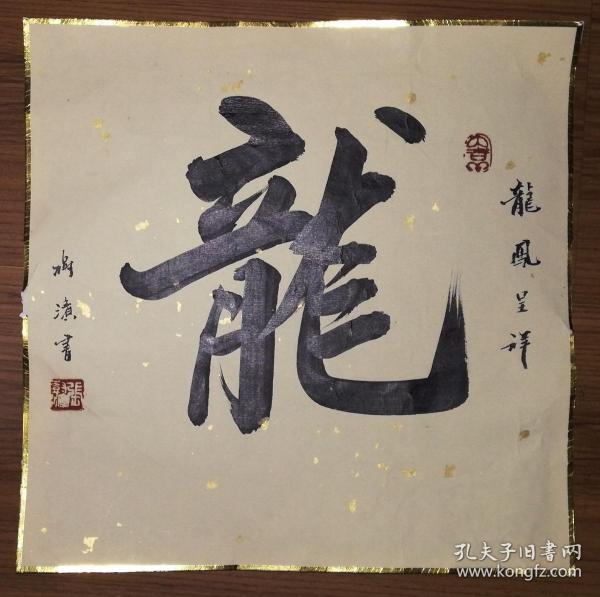 龍鳳呈祥
龍
樹濱書
孔夫子旧書网
www.kongfz.com